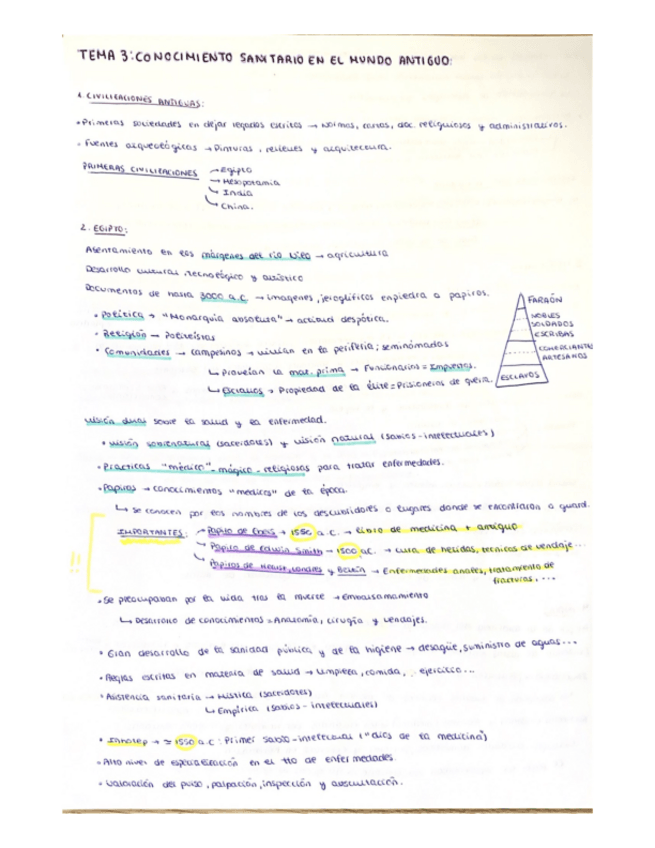 TEMA 3: CONOCIMIENTO SANITARIO EN EL MUNDO ANTIGUO:
1. CIVILIZACIONES ANTIGUAS:
• Primeras sociedades en dejar legados escritos → Normas, cartas, doc. religiosos y administrativos.
• Fuentes arqueológicas → Pinturas, relieves y arquitectura.
PRIMERAS CIVILIZACIONES → Egipto
→ Mesopotamia
→ India
→ China.
2. EGIPTO:
Asentamiento en los márgenes del río Nilo → agricultura
Desarrollo cultural, tecnológico y artístico
Documentos de hasta 3000 a.C. → imágenes, jeroglíficos en piedra o papiros.
• Política → "Monarquía absoluta" → actitud despótica.
• Religión → Politeísta
• Comunidades → campesinos → vivían en la periferia; seminómadas
↳ Proveían la mat. prima → Funcionarios = Impuestos.
↳ Esclavos → Propiedad de la élite = Prisioneros de guerra.
FARAÓN
NOBLES
SOLDADOS
ESCRIBAS
COMERCIANTES
ARTESANOS
ESCLAVOS
Visión dual sobre la salud y la enfermedad.
• Visión sobrenatural (sacerdotes) y visión natural (sabios-intelectuales)
• Prácticas "médico"-mágico-religiosas para tratar enfermedades.
• Papiros → conocimientos "médicos" de la época.
↳ se conocen por los nombres de los descubridores o lugares donde se encontraron o guard.
!! IMPORTANTES: → Papiro de Ebers → 1550 a.C. → Libro de medicina + antiguo
→ Papiro de Edwin Smith → 1500 a.C. → cura de heridas, técnicas de vendaje...
→ Papiros de Hearst, Londres y Berlín → Enfermedades anales, tratamiento de
fracturas, ...
• Se preocupaban por la vida tras la muerte → Embalsamamiento
↳ Desarrollo de conocimientos = Anatomía, cirugía y vendajes.
• Gran desarrollo de la sanidad pública y de la higiene → desagüe, suministro de aguas...
• Reglas escritas en materia de salud → Limpieza, comida, ejercicio...
• Asistencia sanitaria → Mística (sacerdotes)
↳ Empírica (sabios-intelectuales)
• Imhotep → ≃ 1550 a.C: Primer sabio-intelectual ("dios de la medicina")
• Alto nivel de especialización en el tto de enfermedades.
• Valoración del pulso, palpación, inspección y auscultación.